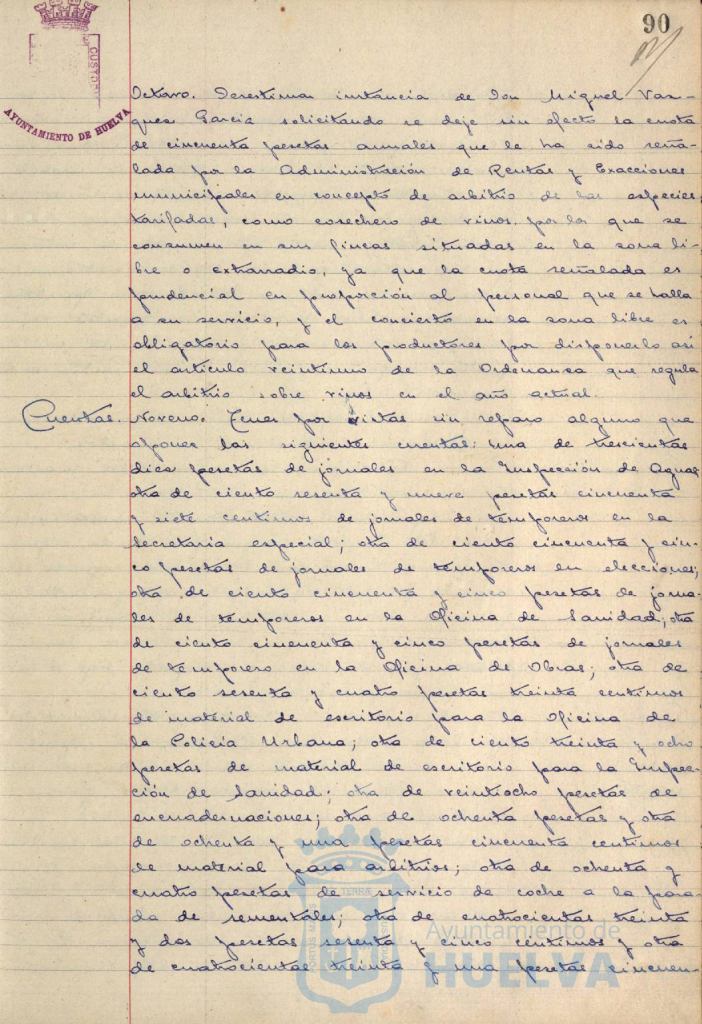 90
CUSTOD
AYUNTAMIENTO DE HUELVA
Octavo. Desestimar instancia de Don Miguel Vaz-
quez Garcia solicitando se deje sin efecto la cuota
de cincuenta pesetas anuales que le ha sido seña-
lada por la Administración de Rentas y Exacciones
municipales en concepto de arbitrio de las especies
tarifadas, como cosechero de vinos, por los que se
consumen en sus fincas situadas en la zona li-
bre o extrarradio, ya que la cuota señalada es
prudencial en proporción al personal que se halla
a su servicio, y el concierto en la zona libre es
obligatorio para los productores por disponerlo así
el articulo veintiuno de la Ordenanza que regula
el arbitrio sobre vinos en el año actual.
Cuentas. Noveno. Tener por vistas sin reparo alguno que
oponer las siguientes cuentas: una de trescientas
diez pesetas de jornales en la Inspección de Aguas
otra de ciento sesenta y nueve pesetas cincuenta
y siete centimos de jornales de temporeros en la
Secretaria especial; otra de ciento cincuenta y cin-
co pesetas de jornales de temporeros en elecciones;
otra de ciento cincuenta y cinco pesetas de jorna-
les de temporeros en la Oficina de Sanidad; otra
de ciento cincuenta y cinco pesetas de jornales
de temporero en la Oficina de Obras; otra de
ciento sesenta y cuatro pesetas treinta centimos
de material de escritorio para la Oficina de
la Policia Urbana; otra de ciento treinta y ocho
pesetas de material de escritorio para la Inspec-
ción de Sanidad; otra de veintiocho pesetas de
encuadernaciones; otra de ochenta pesetas y otra
de ochenta y una pesetas cincuenta centimos
de material para arbitrios; otra de ochenta y
cuatro pesetas de servicio de coche a la para-
da de sementales; otra de cuatrocientas treinta
y dos pesetas sesenta y cinco centimos y otra
de cuatrocientas treinta y una pesetas cincuen-
Ayuntamiento de
HUELVA